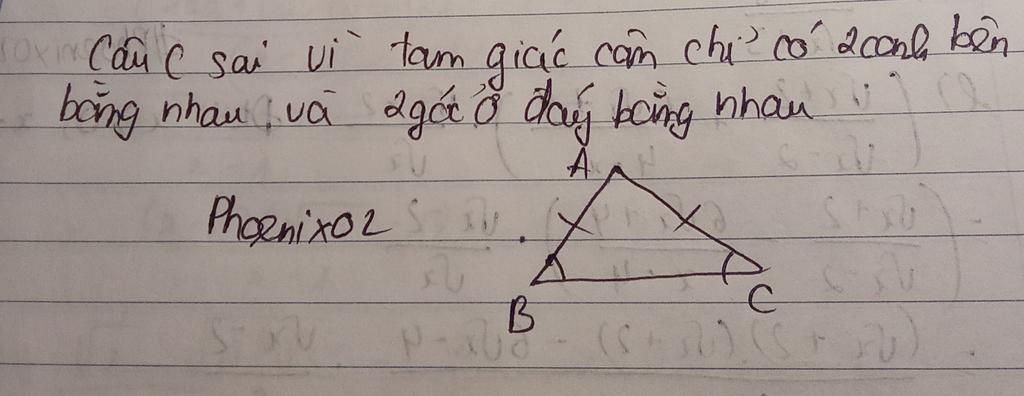 Câu C sai vì tam giác cân chỉ có 2 cạnh bên
bằng nhau và 2 góc ở đáy bằng nhau
A
Phoenix02
B
C